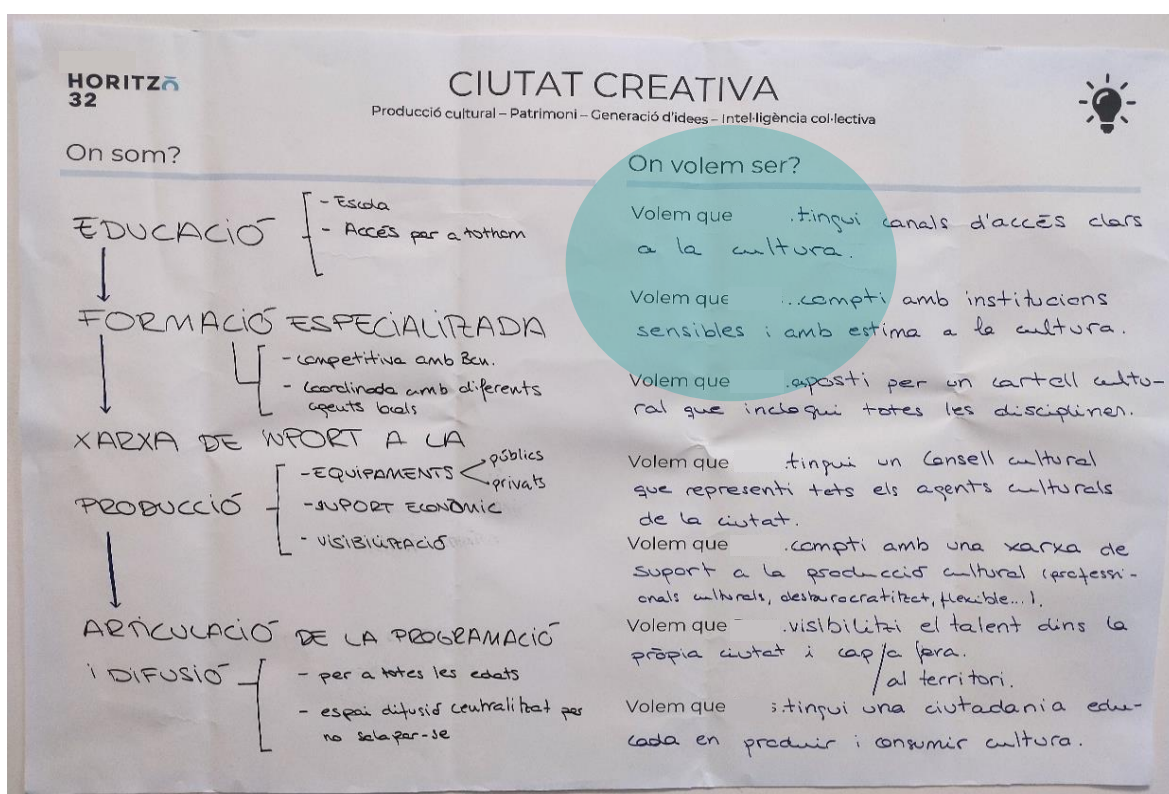 HORITZÓ
32
CIUTAT CREATIVA
Producció cultural – Patrimoni – Generació d'idees – Intel·ligència col·lectiva
On som?
EDUCACIÓ
- Escola
- Accés per a tothom
FORMACIÓ ESPECIALITZADA
- competitiva amb Bcn.
- Coordinada amb diferents
agents locals
XARXA DE SUPORT A LA
PRODUCCIÓ
- EQUIPAMENTS
públics
privats
- SUPORT ECONÒMIC
- VISIBILITZACIÓ
ARTICULACIÓ DE LA PROGRAMACIÓ
i DIFUSIÓ
- per a totes les edats
- espai difusió centralitzat per
no solapar-se
On volem ser?
Volem que ...tingui canals d'accés clars
a la cultura.
Volem que ...compti amb institucions
sensibles i amb estima a la cultura.
Volem que ...aposti per un cartell cultu-
ral que inclogui totes les disciplines.
Volem que tingui un Consell cultural
que representi tots els agents culturals
de la ciutat.
Volem que ...compti amb una xarxa de
suport a la producció cultural (professi-
onals culturals, desburocratitzat, flexible...).
Volem que ...visibilitzi el talent dins la
pròpia ciutat i cap a fora.
/al territori.
Volem que tingui una ciutadania edu-
cada en produir i consumir cultura.